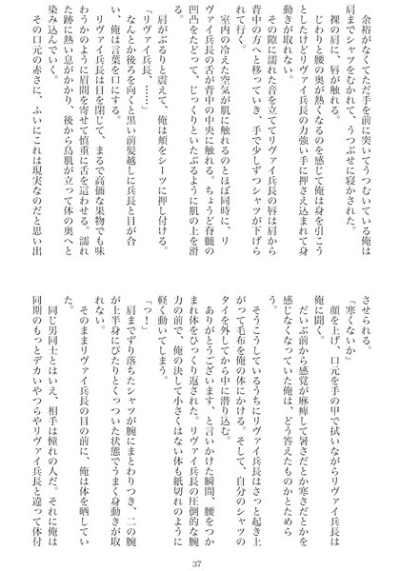 余裕がなくてただ手を前に突いてうつむいている俺は
肩までシャツをむかれて、うつぶせに寝かされた。
裸の肩に、唇が触れる。
じわりと腰の奥が熱くなるのを感じて俺は身を引こう
としたけどリヴァイ兵長の力強い手に押さえ込まれて身
動きが取れない。
その隙に濡れた音を立ててリヴァイ兵長の唇は肩から
背中の方へと移っていき、手で少しずつシャツが下げら
れて行く。
室内の冷えた空気が肌に触れるのとほぼ同時に、リ
ヴァイ兵長の舌が背中の中央に触れる。ちょうど脊髄の
凹凸をたどって、じっくりといたぶるように肌の上を滑
る。
肩がぶるりと震えて、俺は頬をシーツに押し付ける。
「リヴァイ兵長、……」
なんとか後ろを向くと黒い前髪越しに兵長と目が合
い、俺は言葉を口にする。
リヴァイ兵長は目を閉じて、まるで高価な果物でも味
わうかのように眉間を寄せて慎重に舌を這わせる。濡れ
た跡に熱い息がかかり、後から鳥肌が立って体の奥へと
染み込んでいく。
その口元の赤さに、ふいにこれは現実なのだと思い出
させられる。
「寒くないか」
顔を上げ、口元を手の甲で拭いながらリヴァイ兵長は
俺に聞く。
だいぶ前から感覚が麻痺して暑さだとか寒さだとかを
感じなくなっていた俺は、どう答えたものかとためら
う。
そうこうしているうちにリヴァイ兵長はさっと起き上
がって毛布を俺の体にかける。そして、自分のシャツの
タイを外してから中に潜り込む。
ありがとうございます、と言いかけた瞬間、腰をつか
まれ体をひっくり返された。リヴァイ兵長の圧倒的な腕
力の前で、俺の決して小さくはない体も紙切れのように
軽く動いてしまう。
「っ！」
肩までずり落ちたシャツが腕にまとわりつき、二の腕
が上半身にぴたりとくっついた状態でうまく身動きが取
れない。
そのままリヴァイ兵長の目の前に、俺は体を晒してい
た。
同じ男同士とはいえ、相手は憧れの人だ。それに俺は
同期のもっとデカいやつらやリヴァイ兵長と違って体付
37